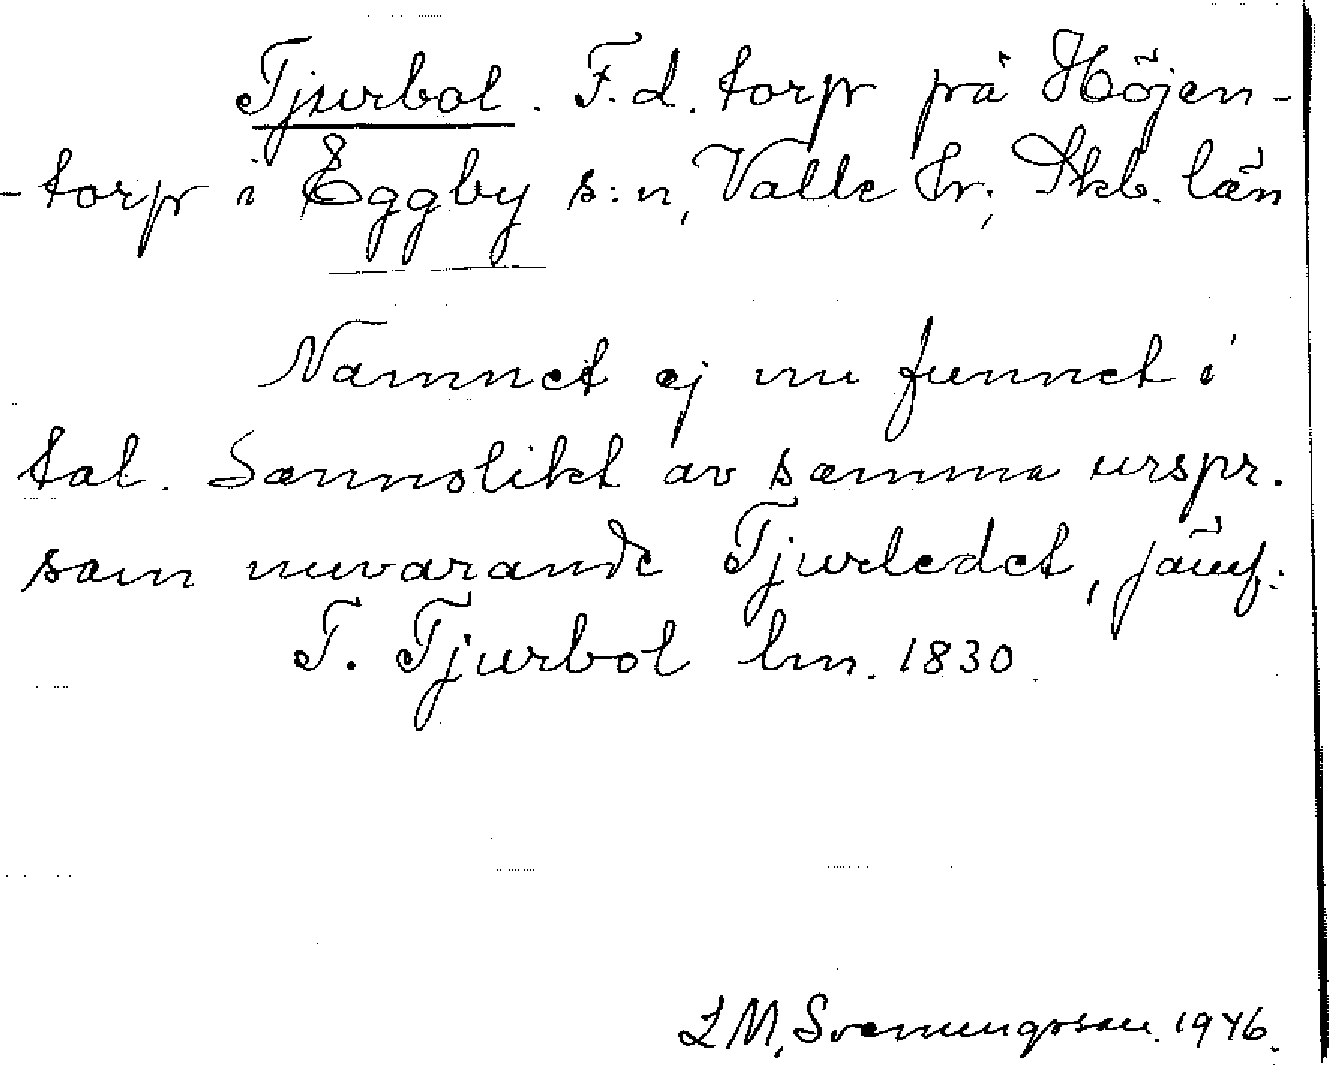 Tjurbol. F.d. torp på Höjen-
-torp i Eggby s:n, Valle hr; Skb. län
Namnet ej nu funnet i
tal. Sannolikt av samma urspr.
som nuvarande Tjurledet, jämf.:
T. Tjurbol lm. 1830.
L M, Svenungsson. 1946.